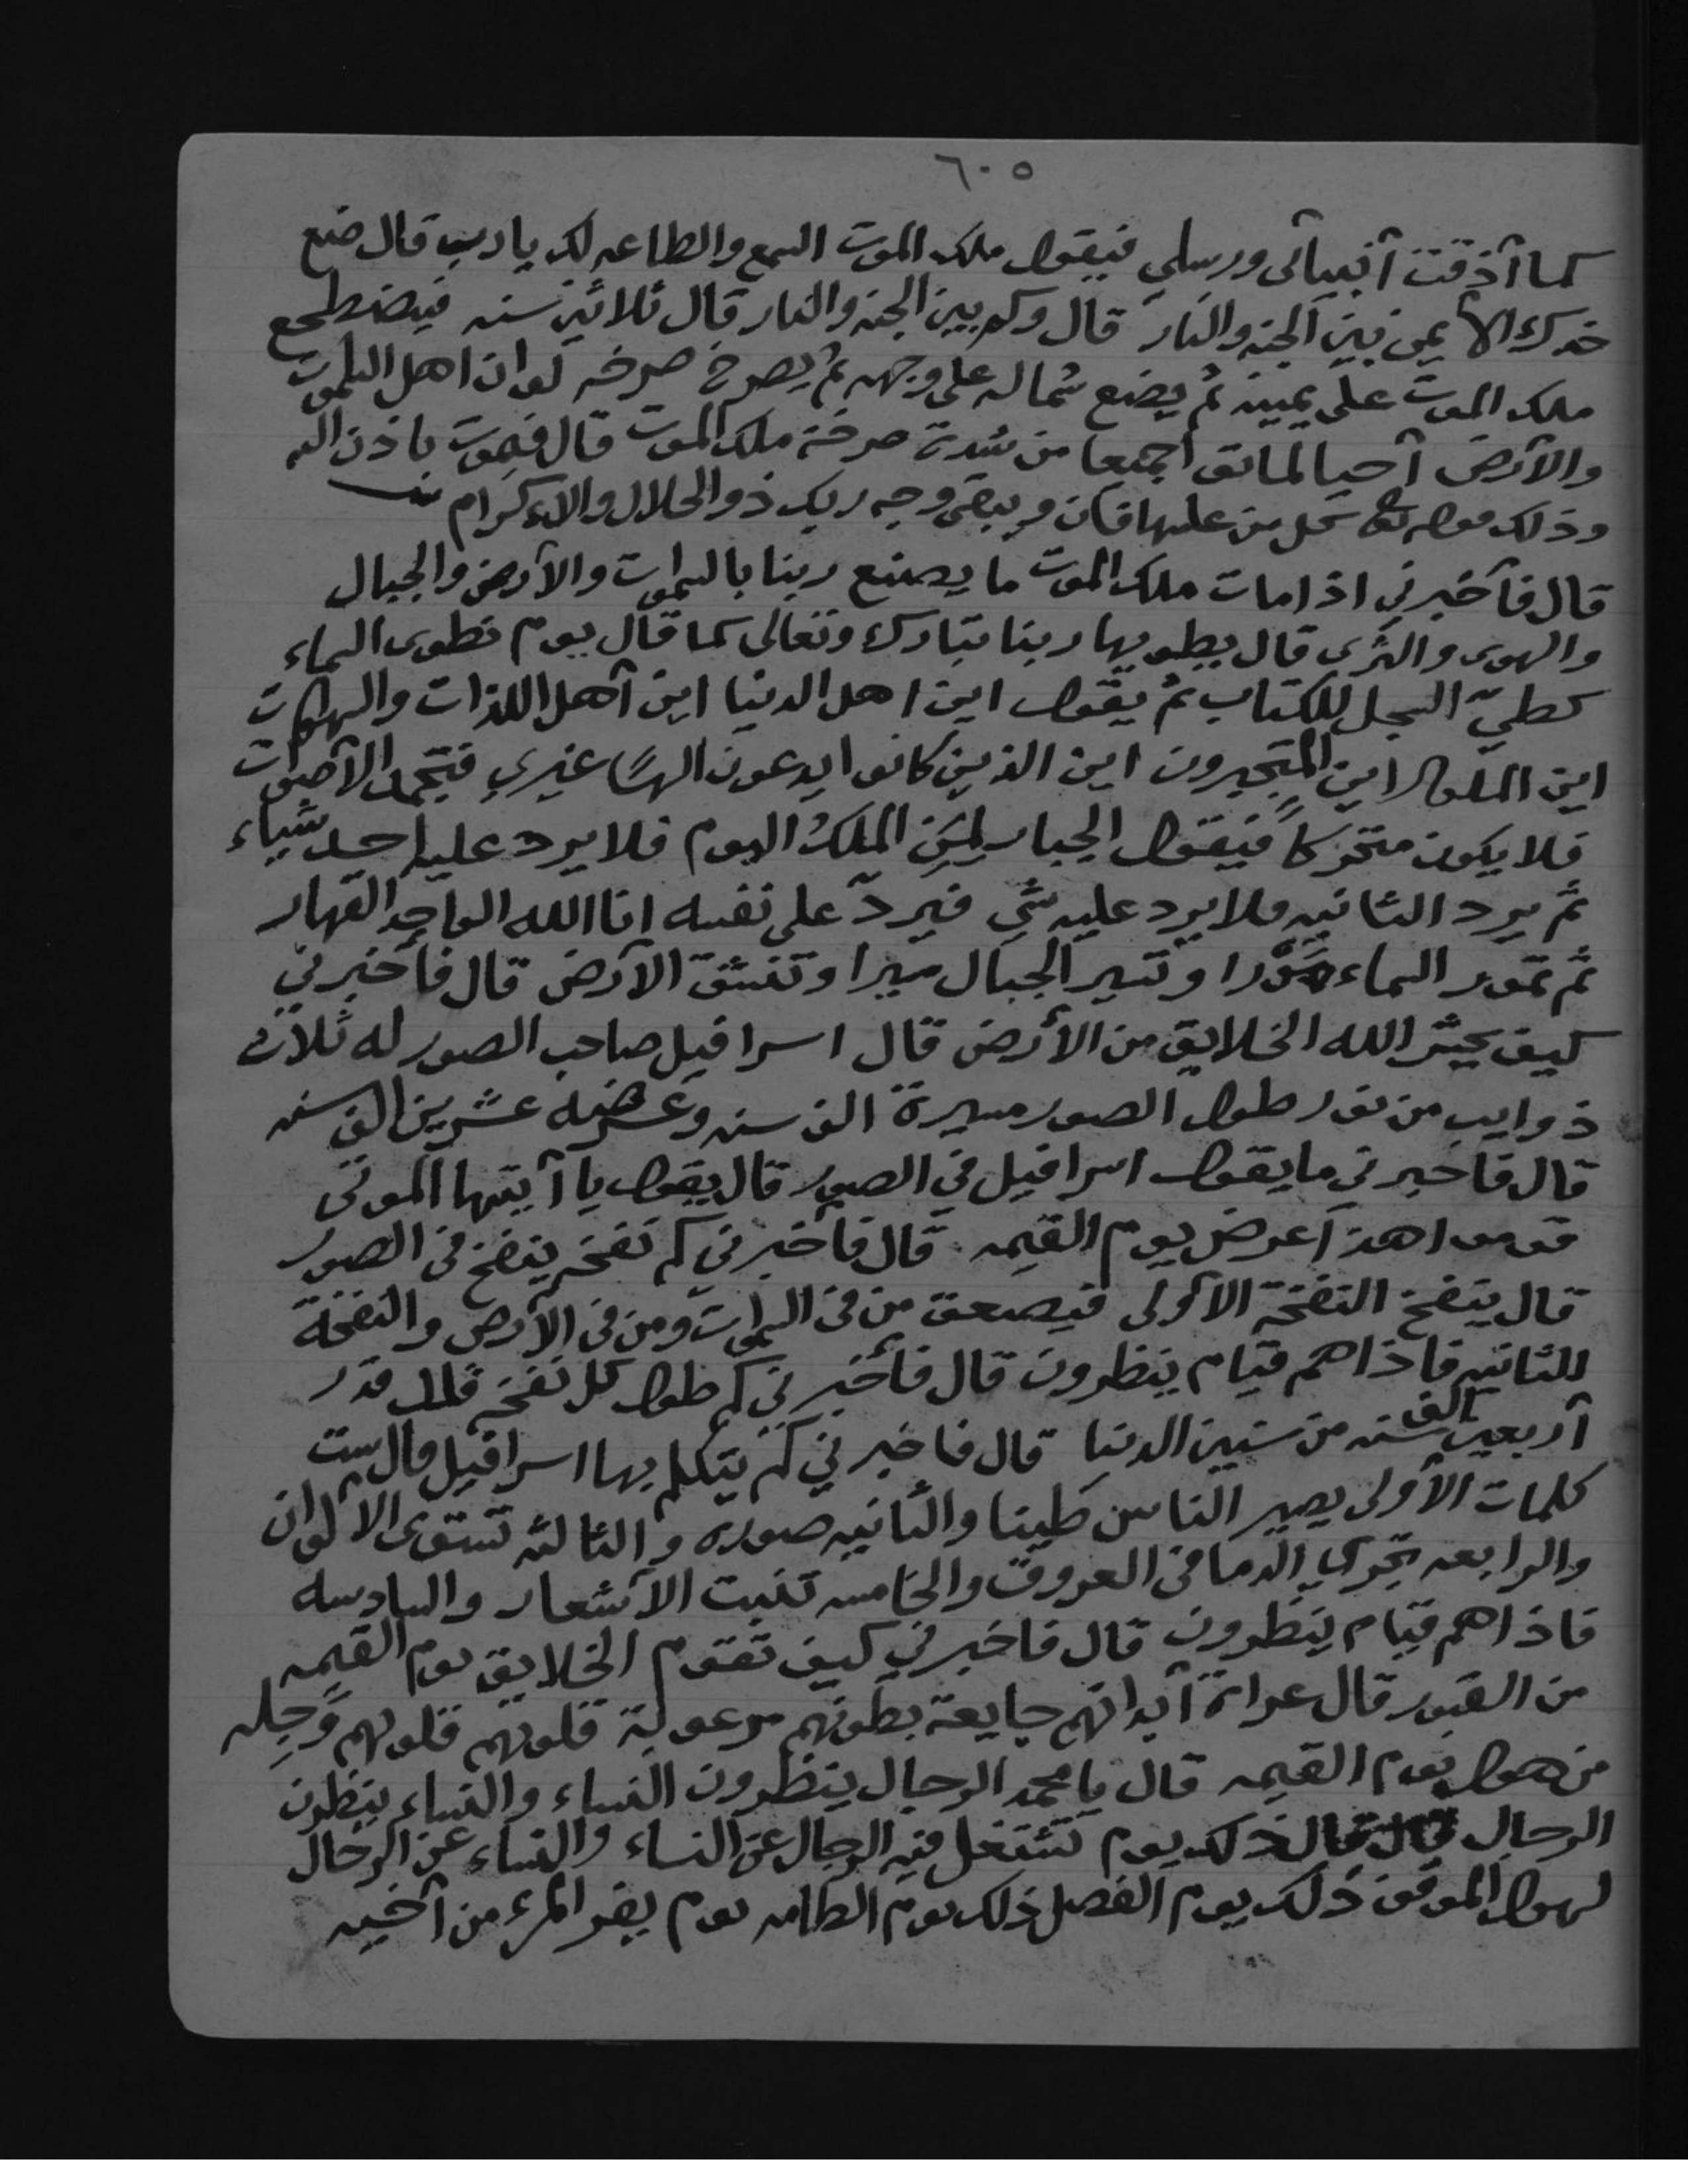 ٦٠٥
كما آذقت آنبيآئى ورسلي فيقول ملك الموت السمع والطاعه لك يا رب قال ضع
خدك الا يمن بين الجنه والنار قال وكم بين الجنه والنار قال ثلاثين سنه فيضطجع
ملك الموت على يمينه ثم يضع شماله على وجهه ثم يصرخ صرخه لو ان اهل السموات
والآرض آحيا لماتو اجميعا من شدت صرخة ملك الموت قال فيموت باذن الله
وذلك قوله تعا كل من عليها فان ويبقى وجه ربك ذو الجلال والاءكرام
قال فآخبرني اذا مات ملك الموت ما يصنع ربنا بالسموات والآرض والجبال
والهوى والثرى قال يطويها ربنا تبارك وتعالى كما قال يوم نطوى السماء
كطيّ السجل للكتاب ثم يقول اين اهل الدنيا اين آهل اللذات والشهوات
اين الملوك اين المتجبرون اين الذين كانو ايدعون الهًا غيري فتخمد الآصوات
فلا يكون متحركاً فيقول الجبار لمن الملك اليوم فلا يرد عليه احد شيياء
ثم يرد الثانيه فلا يرد عليه شي فيردّ على نفسه انا الله الواحد القهار
ثم تمور السماء مَوْرا وتسير الجبال سيرا وتنشق الآرض قال فآخبرني
كيف يحشر الله الخلايق من الآرض قال اسرافيل صاحب الصور له ثلاث
ذوايب من نور طول الصور مسيرة الف سنه وعرضه عشرين الف سنه
قال فاخبرني ما يقول اسرافيل في الصور قال يقول يا آيتها الموتى
قوموا هذا عرض يوم القيمه قال فآخبرني كم نفخه ينفخ فى الصور
قال ينفخ النفخة الآولى فيصعق من فى السموات ومن فى الآرض والنفخة
للثانيه فاذاهم قيام ينظرون قال فآخبرني كم طول كل نفخه قال قدر
آربعين الف سنه من سنين الدنيا قال فاخبرني كم يتكلم بها اسرافيل قال ست
كلمات الآولى يصير الناس طينا والثانيه صوره والثالثه تستوى الالوان
والرابعه تجري الدما فى العروق والخامسه تنبت الآشعار والسادسه
فاذاهم قيام ينظرون قال فاخبرني كيف تقوم الخلايق يوم القيمه
من القبور قال عراة آبدانهم جايعة بطونهم مرعوبة قلوبهم قلوبهم وَجِله
من هول يوم القيمه قال يا محمد الرجال ينظرون النساء والنساء ينظرون
الرجال قال ذلك يوم تشتغل فيه الرجال عن النساء والنساء عن الرجال
لهول الموقف ذلك يوم الفصل ذلك يوم الطامه يوم يفر المرء من آخيه